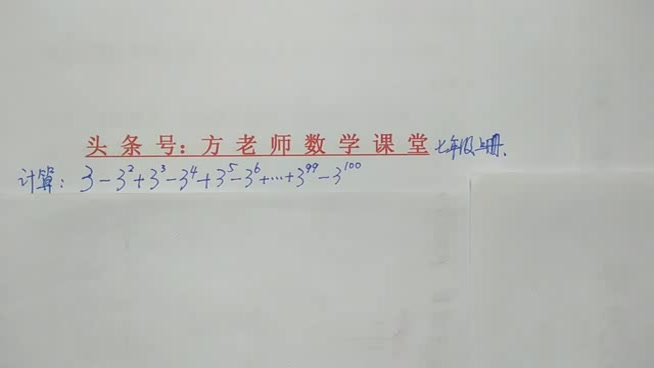 头条号：方老师数学课堂七年级上册.
计算：3-3²+3³-3⁴+3⁵-3⁶+…+3⁹⁹-3¹⁰⁰